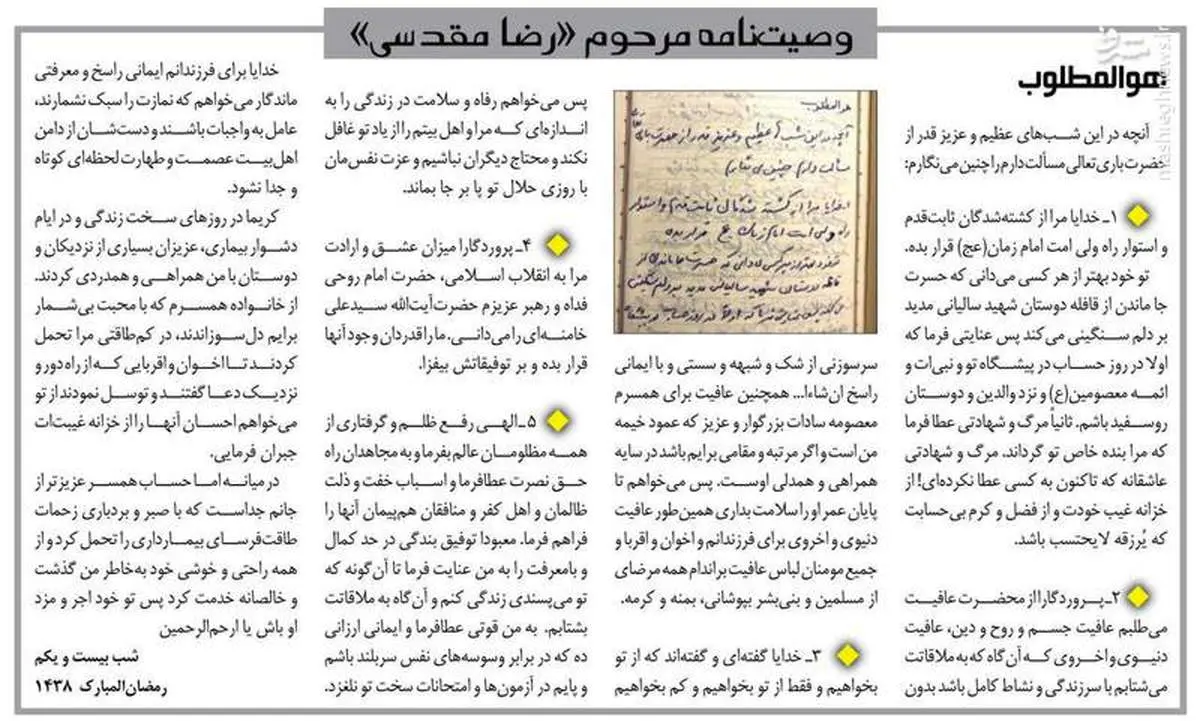 وصیت‌نامه مرحوم «رضا مقدسی»
هوالمطلوب
آنچه در این شب‌های عظیم و عزیز قدر از
حضرت باری‌تعالی مسألت دارم را چنین می‌نگارم:
۱ـ خدایا مرا از کشته‌شدگان ثابت‌قدم
و استوار راه ولی امت امام زمان(عج) قرار بده.
تو خود بهتر از هر کسی می‌دانی که حسرت
جا ماندن از قافله دوستان شهید سالیانی مدید
بر دلم سنگینی می‌کند پس عنایتی فرما که
اولا در روز حساب در پیشگاه تو و نبی‌ات و
ائمه معصومین(ع) و نزد والدین و دوستان
روسفید باشم. ثانیاً مرگ و شهادتی عطا فرما
که مرا بنده خاص تو گرداند. مرگ و شهادتی
عاشقانه که تاکنون به کسی عطا نکرده‌ای! از
خزانه غیب خودت و از فضل و کرم بی‌حسابت
که یُرزقه لایحتسب باشد.
۲ـ پروردگارا از محضرت عافیت
می‌طلبم عافیت جسم و روح و دین، عافیت
دنیوی و اخروی که آن گاه که به ملاقاتت
می‌شتابم با سرزندگی و نشاط کامل باشد بدون
هوالمطلوب
سرسوزنی از شک و شبهه و سستی و با ایمانی
راسخ ان‌شاءا... همچنین عافیت برای همسرم
معصومه سادات بزرگوار و عزیز که عمود خیمه
من است و اگر مرتبه و مقامی برایم باشد در سایه
همراهی و همدلی اوست. پس می‌خواهم تا
پایان عمر او را سلامت بداری همین‌طور عافیت
دنیوی و اخروی برای فرزندانم و اخوان و اقربا و
جمیع مومنان لباس عافیت بر اندام همه مرضای
از مسلمین و بنی‌بشر بپوشانی، بمنه و کرمه.
۳ـ خدایا گفته‌ای و گفته‌اند که از تو
بخواهیم و فقط از تو بخواهیم و کم بخواهیم
پس می‌خواهم رفاه و سلامت در زندگی را به
اندازه‌ای که مرا و اهل بیتم را از یاد تو غافل
نکند و محتاج دیگران نباشیم و عزت نفس‌مان
با روزی حلال تو پا بر جا بماند.
۴ـ پروردگارا میزان عشق و ارادت
مرا به انقلاب اسلامی، حضرت امام روحی
فداه و رهبر عزیزم حضرت‌آیت‌الله سیدعلی
خامنه‌ای را می‌دانی. ما را قدردان وجود آنها
قرار بده و بر توفیقاتش بیفزا.
۵ـ الهی رفع ظلم و گرفتاری از
همه مظلومان عالم بفرما و به مجاهدان راه
حق نصرت عطافرما و اسباب خفت و ذلت
ظالمان و اهل کفر و منافقان هم‌پیمان آنها را
فراهم فرما. معبودا توفیق بندگی در حد کمال
و بامعرفت را به من عنایت فرما تا آن‌گونه که
تو می‌پسندی زندگی کنم و آن گاه به ملاقاتت
بشتابم. به من قوتی عطافرما و ایمانی ارزانی
ده که در برابر وسوسه‌های نفس سربلند باشم
و پایم در آزمون‌ها و امتحانات سخت تو نلغزد.
خدایا برای فرزندانم ایمانی راسخ و معرفتی
ماندگار می‌خواهم که نمازت را سبک نشمارند،
عامل به واجبات باشند و دست‌شان از دامن
اهل‌بیت عصمت و طهارت لحظه‌ای کوتاه
و جدا نشود.
کریما در روزهای سخت زندگی و در ایام
دشوار بیماری، عزیزان بسیاری از نزدیکان و
دوستان با من همراهی و همدردی کردند.
از خانواده همسرم که با محبت بی‌شمار
برایم دل‌سوزاندند، در کم‌طاقتی مرا تحمل
کردند تا اخوان و اقربایی که از راه دور و
نزدیک دعا گفتند و توسل نمودند از تو
می‌خواهم احسان آنها را از خزانه غیب‌ات
جبران فرمایی.
در میانه اما حساب همسر عزیزتر از
جانم جداست که با صبر و بردباری زحمات
طاقت‌فرسای بیمارداری را تحمل کرد و از
همه راحتی و خوشی خود به‌خاطر من گذشت
و خالصانه خدمت کرد پس تو خود اجر و مزد
او باش یا ارحم‌الرحمین
شب بیست و یکم
رمضان‌المبارک ۱۴۳۸
mashreghnews.ir